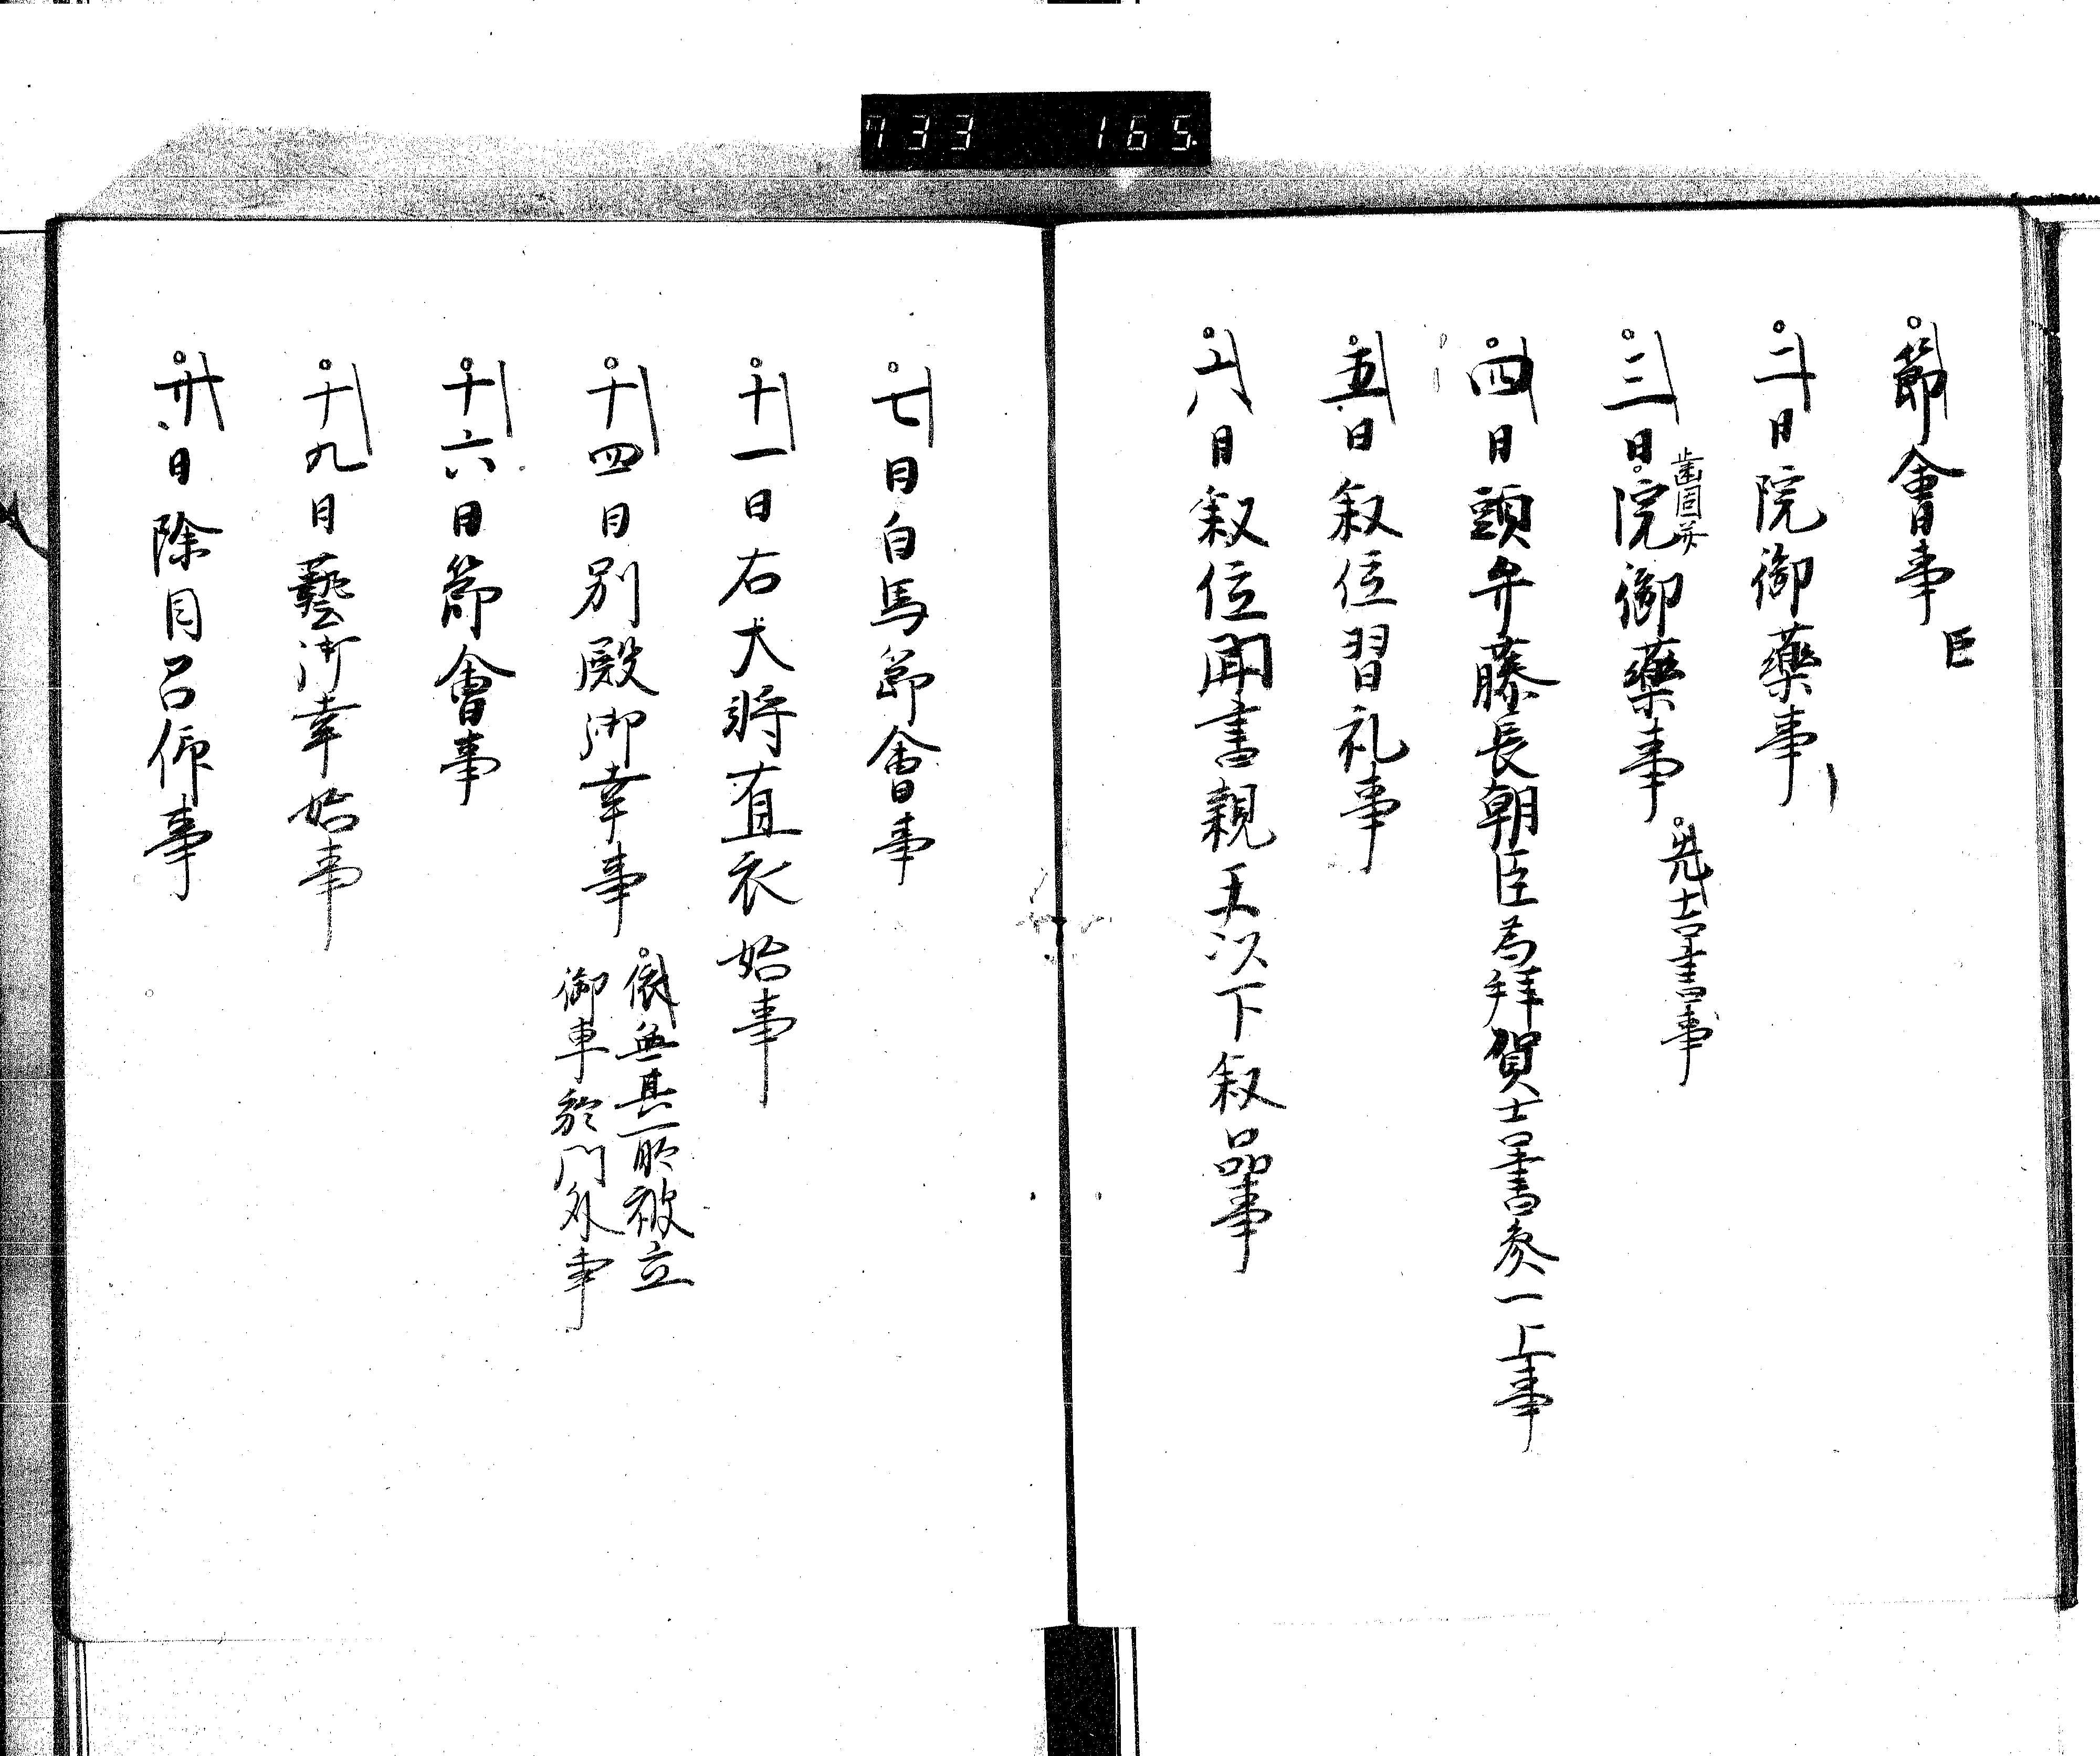 733 165
節會事 臣
二日院御藥事
三日院御藥事 先吉書事
歯固并
四日頭弁藤長朝臣為拜賀吉書参一上事
五日叙位習礼事
六日叙位聞書親王以下叙品事
七日白馬節會事
十一日右大将直衣始事
十四日別殿御幸事
依無其所被立
御車於門外事
十六日節會事
十九日藝御幸始事
廿八日除目召仰事